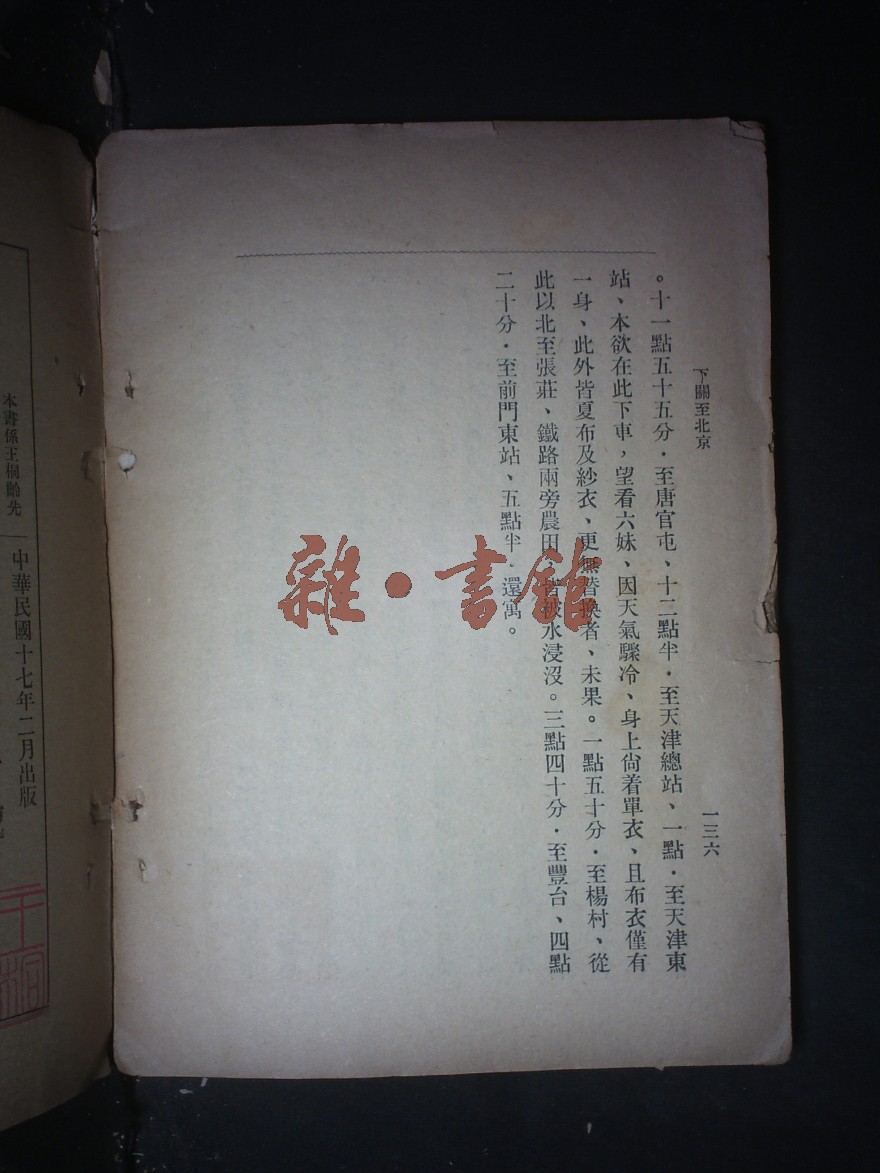 下關至北京
一三六
。十一點五十五分．至唐官屯、十二點半．至天津總站、一點．至天津東
站、本欲在此下車，望看六妹、因天氣驟冷、身上尙着單衣、且布衣僅有
一身、此外皆夏布及紗衣、更無替換者、未果。一點五十分．至楊村、從
此以北至張莊、鐵路兩旁農田、皆被水浸沒。三點四十分．至豐台、四點
二十分．至前門東站、五點半．還寓。
雜·書館
中華民國十七年二月出版
本書係王桐齡先